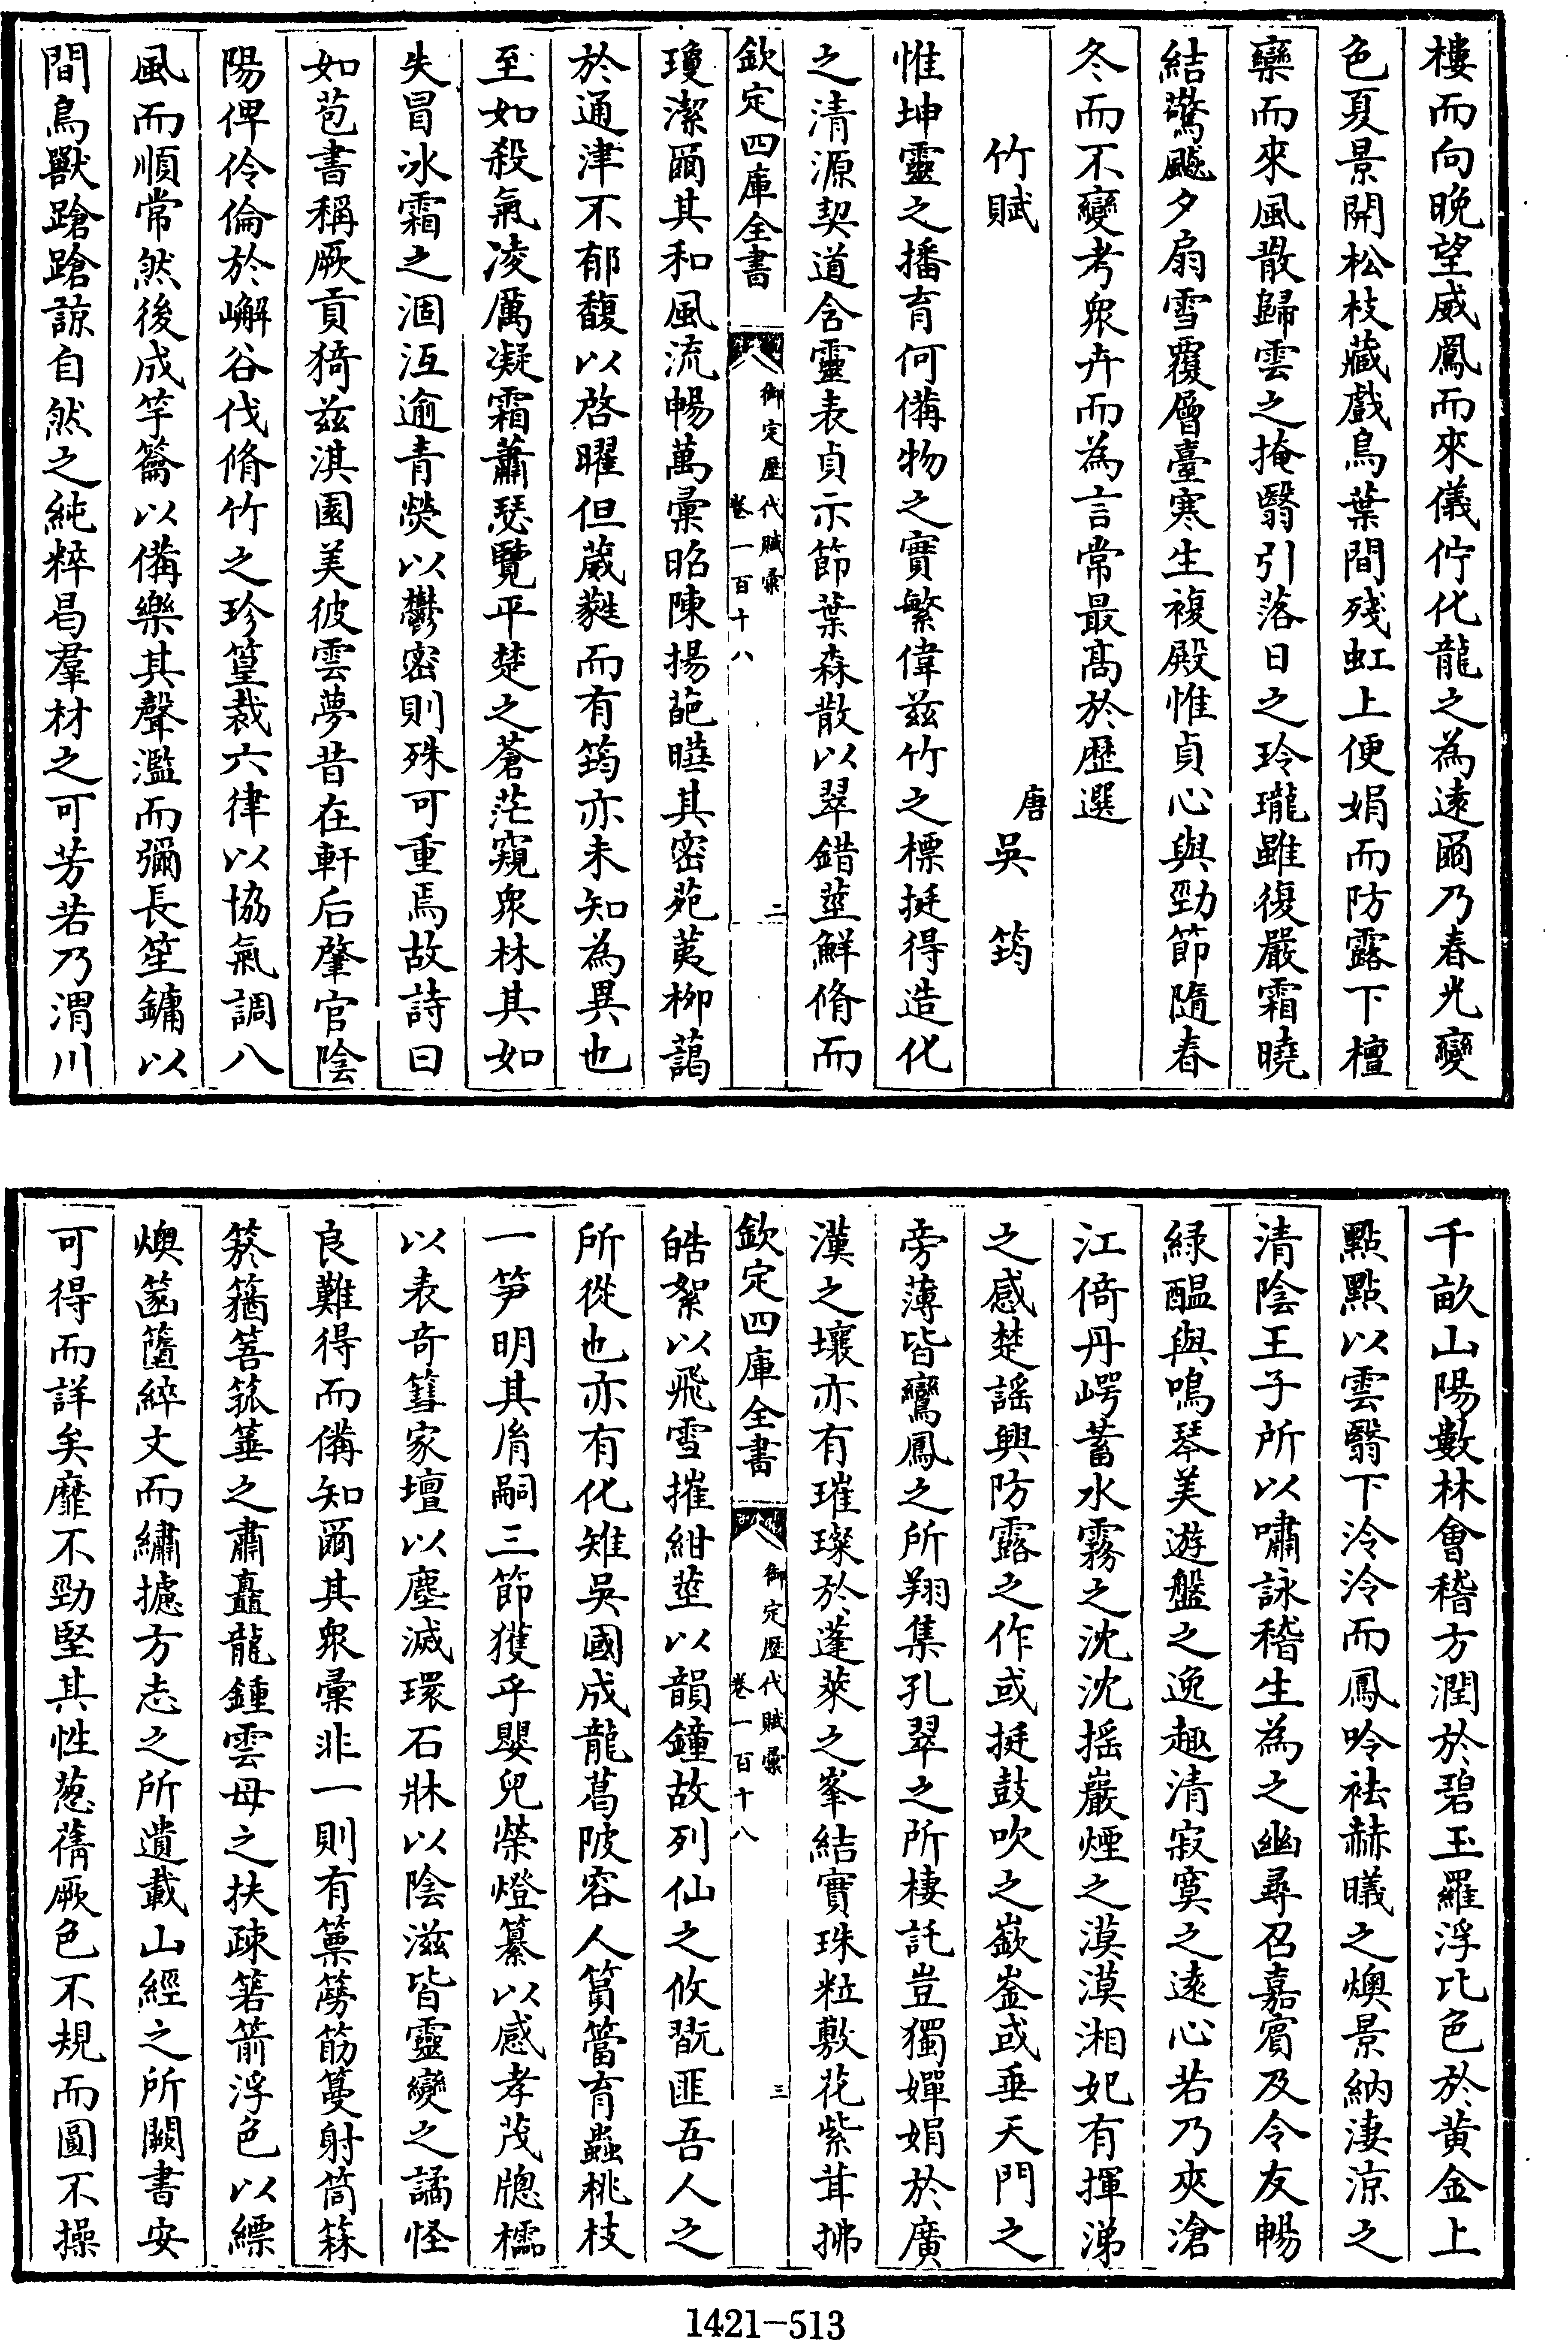 樓而向晚望威鳳而來儀佇化龍之為遠爾乃春光變
色夏景開松枝藏戲鳥葉間殘虹上便娟而防露下檀
欒而來風散歸雲之掩翳引落日之玲瓏雖復嚴霜曉
結驚飈夕扇雪覆層臺寒生複殿惟貞心與勁節隨春
冬而不變考衆卉而為言常最髙於歴選
竹賦
唐 吳筠
惟坤靈之播育何備物之實繁偉兹竹之標挺得造化
之清源契道含靈表貞示節葉森散以翠錯莖鮮脩而
欽定四庫全書
御定歴代賦彙
卷一百十八
二
瓊潔爾其和風流暢萬彙昭陳揚葩曄其密苑荑柳藹
於通津不郁馥以啓曜但葳蕤而有筠亦未知為異也
至如殺氣凌厲凝霜蕭瑟覽平楚之蒼茫窺衆林其如
失冒冰霜之涸沍逾青熒以鬱密則殊可重焉故詩曰
如苞書稱厥貢猗兹淇園美彼雲夢昔在軒后肇官陰
陽俾伶倫於嶰谷伐脩竹之珍篁裁六律以協氣調八
風而順常然後成竽籥以備樂其聲濫而彌長笙鏞以
間鳥獸蹌蹌諒自然之純粹曷羣材之可芳若乃渭川
千畝山陽數林會稽方潤於碧玉羅浮比色於黄金上
點點以雲翳下泠泠而鳳吟袪赫曦之燠景納淒涼之
清陰王子所以嘯詠稽生為之幽尋召嘉賓及令友暢
緑醖與鳴琴美遊盤之逸趣清寂寞之遠心若乃夾滄
江倚丹崿蓄水霧之沈沈揺巖煙之漠漠湘妃有揮涕
之感楚謡興防露之作或挺鼓吹之嶔崟或垂天門之
旁薄皆鸞鳳之所翔集孔翠之所棲託豈獨嬋娟於廣
漢之壤亦有璀璨於蓬萊之峯結實珠粒敷花紫茸拂
欽定四庫全書
御定歴代賦彙
卷一百十八
三
皓絮以飛雪摧紺莖以韻鐘故列仙之攸翫匪吾人之
所從也亦有化雉吳國成龍葛陂容人篔簹育蟲桃枝
一笋明其胤嗣三節獲乎嬰兒榮燈纂以感孝茂牎檽
以表奇篲家壇以塵滅環石牀以陰滋皆靈變之譎怪
良難得而備知爾其衆彙非一則有篻簩筋䈵射筒箖
箊䈛䈙箛箠之肅矗龍鍾雲母之扶疎箬箭浮色以縹
燠箘簬綷文而繡攄方志之所遺載山經之所闕書安
可得而詳矣靡不勁堅其性葱蒨厥色不規而圓不操
1421-513